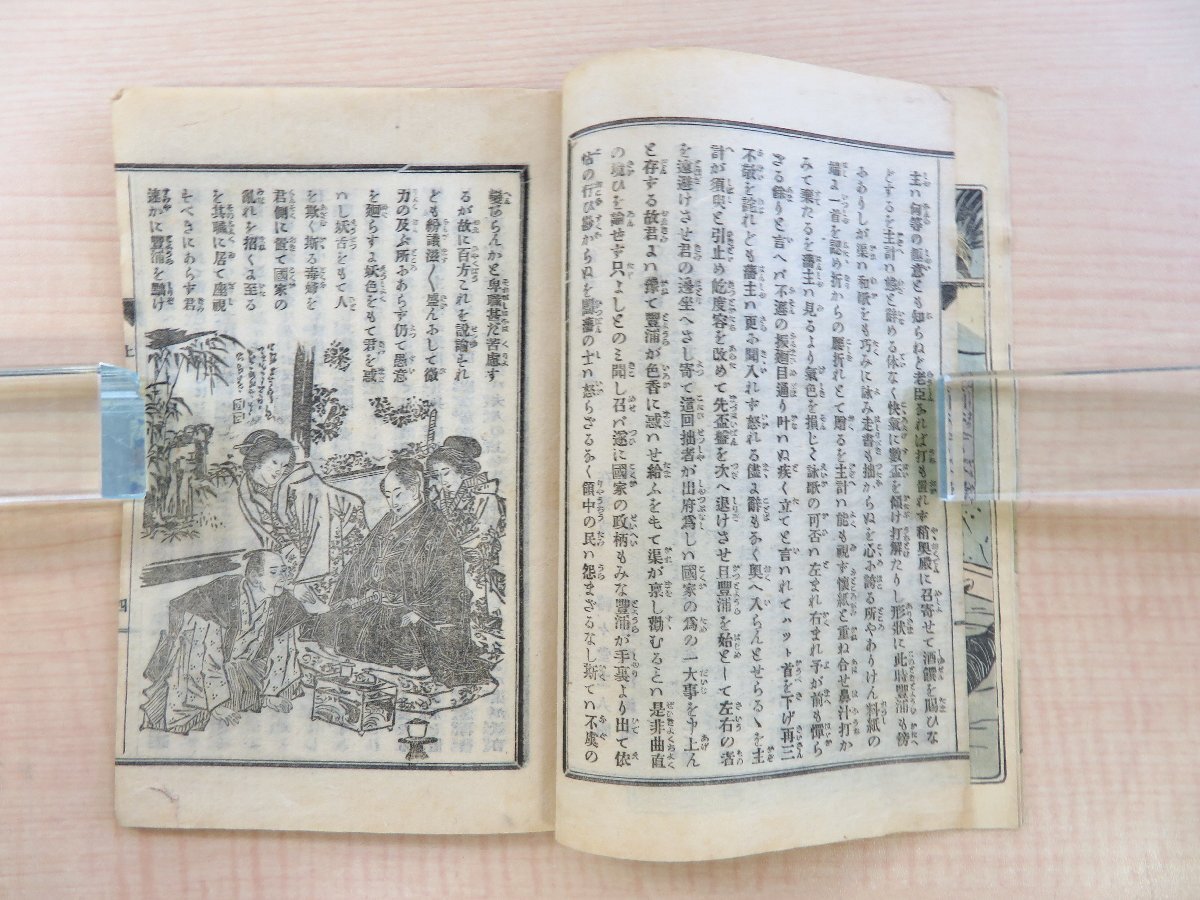 主ハ何等の趣意とも知らねど老臣なれば打も置れず稍奥殿に召寄せて酒饌を賜ひな
どするを主計ハ態と辞める体なく快氣に數盃を傾け打解たりし形状に此時豐浦も傍
ふありしが渠ハ和歌をも巧みに詠み走書も拙からぬを心ふ誇る所やありけん料紙の
端よ一首を認め折からの腰折れとて贈るを主計ハ能も視ず懐紙と重ね合せ鼻汁打か
みて棄たるを藩主ハ見るより氣色を損じて詠歌の可否ハ左まれ右まれ予が前も憚ら
ざる餘りと言へバ不遜の振廻目通り叶いぬ疾く立てと言れてハット首を下げ再三
不敬を詫れども藩主ハ更ふ聞入れず怒れる儘よ辞もなく奥へ入らんとせらるゝを主
計が須與と引止め屹度容を改めて先盃盤を次へ退けさせ且豐浦を始として左右の者
を遠避けさせ君の邊坐へさし寄て這回拙者が出府爲しハ國家の爲の一大事を申上ん
と存する故君よハ豫て豐浦が色香に惑ハせ給ふをもて渠が稟し勸むるとハ是非曲直
の境ひを論せず只よしとのミ聞し召バ遂に國家の政柄もみな豐浦が手裏より出て依
怙の行ひ尠からぬを闔藩の士ハ怒らざるなく領中の民ハ怨まざるなし斯てハ不虞の
變あらんかと卑職甚だ苦慮す
るが故に百方これを説諭すれ
ども紛議滋々盛んふして微
力の及ぶ所ふあらず仍て愚意
を廻らすよ妖色をもて君を惑
ハし妖舌をもて人
を欺く斯る毒婦を
君側に置て國家の
亂れを招くよ至る
を其職に居て座視
すべきにあらす君
速かに豐浦を黜け
上
四